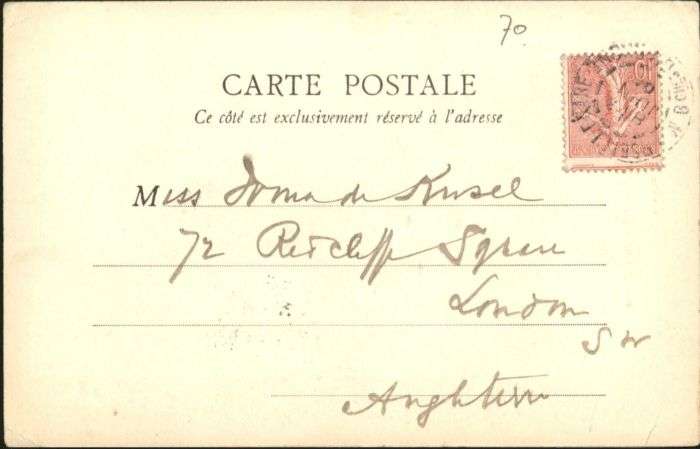 70
CARTE POSTALE
Ce côté est exclusivement réservé à l'adresse
Miss de Kusel
72 Redcliffe Square
London
SW
Angleterre